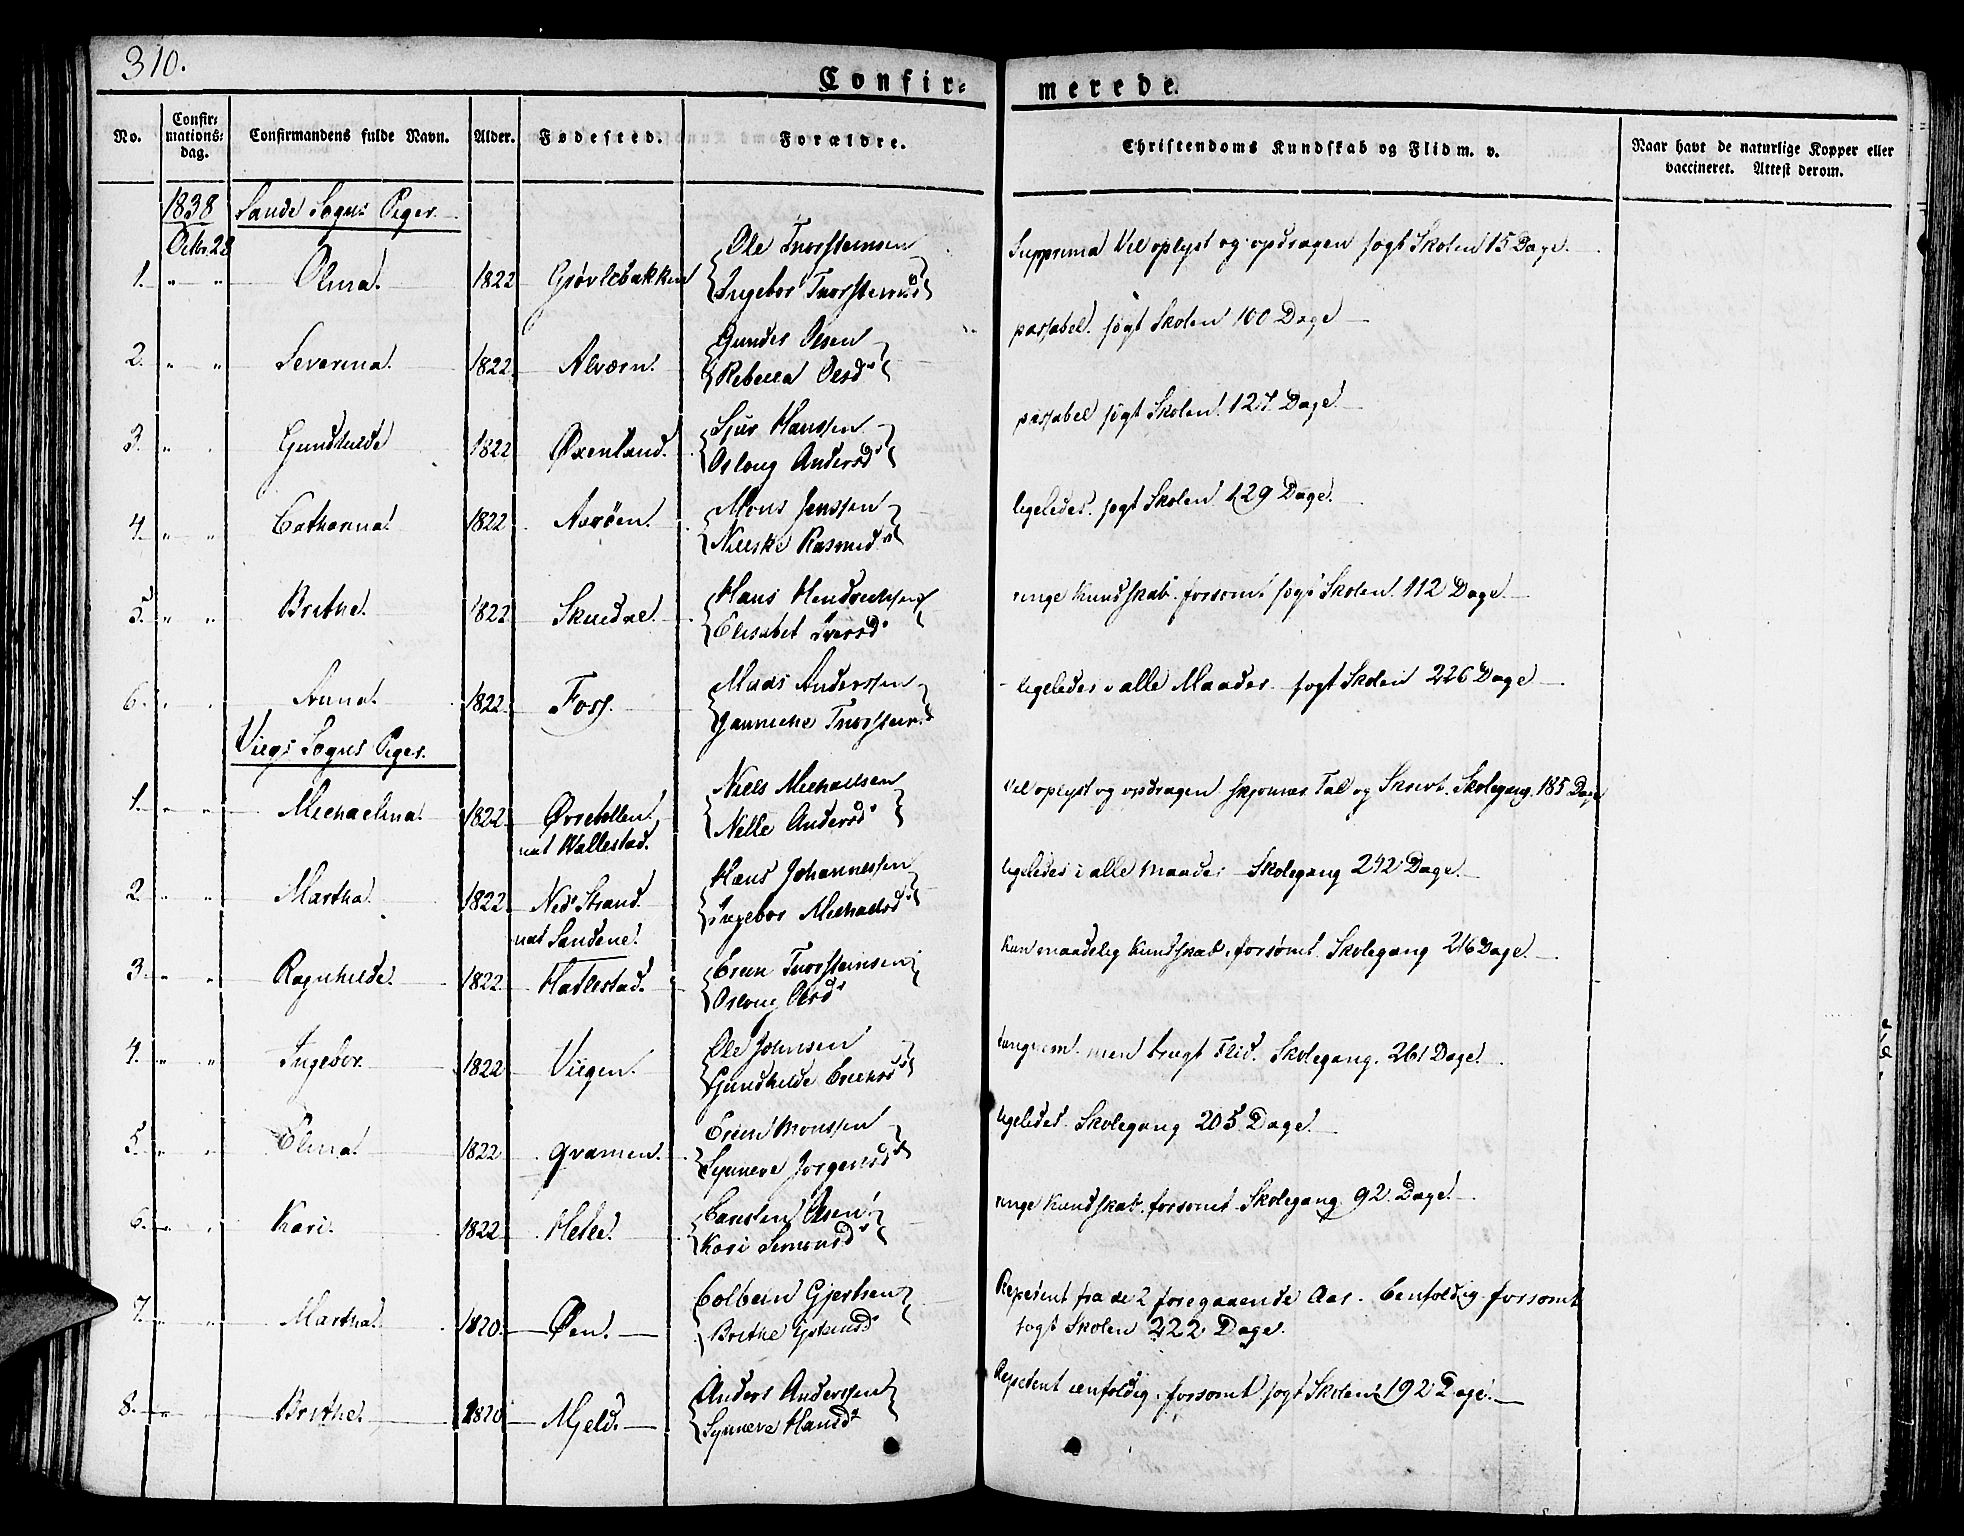 310.
Confir= merede.
No. Confir= mations= dag. Confirmandens fulde Navn. Alder. Fødested. Forældre. Christendoms Kundskab og Flid m. v. Naar havt de naturlige Kopper eller vaccineret. Attest derom.
1838 Sande Sogns Piger.
Octbr. 28
1. " " Olina. 1822 Grøvlebakken Ole Thorsteinsen Ingebor Thorsteinsd Vel oplyst og opdragen søgt Skolen 15 Dage.
2. " " Severina. 1822. Alværn. Gunder Olsen Rebecca Olsd passabel. søgt Skolen 100 Dage
3. " " Gundhilde 1822 Øxenland. Sjur Hanssen Oslaug Andersd passabel søgt Skolen 127. Dage.
4. " " Catharina. 1822 Aarøen. Mons Jenssen Rasmusd ligeledes. søgt Skolen 129 Dage.
5. " " Brithe. 1822. Skeidne. Hans Hendrichsen Elisabet Iversd ringe Kundskab. forsømt søgt Skolen. 112 Dage.
6. " " Anna. 1822. Foss. Mads Anderssen Thorsteinsd ligeledes i alle Maader. søgt Skolen 226 Dage
Viigs Sogns Piger.
1. " " Michaelina. 1822. nat Hallestad. Niels Michaelsen Nille Andersd Vel oplyst og opdragen skjønner Tal og Skrivt. Skolegang. 185 Dage
2 " " Martha. 1822. Ned Strand. nat Sandene. Hans Johannessen Ingebor Michaelsd ligeledes i alle Maader Skolegang 242 Dage.
3. " " Ragnhilde. 1822. Hatlestad. Thorsteinsen Oslaug Olsd Kun maadelig Kundskab, forsømt. Skolegang 216 Dage.
4. " " Ingebor. 1822 Viigen. Ole Johnsen Gundhilde Erichsd tungnem. men brugt Flid. Skolegang. 261 Dage.
5. " " Elina. 1822. Qvamen. Monssen Synneve Jørgensd ligeledes. Skolegang 205. Dage.
6. " " Kari. 1822. Helle. Carsten Olsen Kari Simonsd ringe Kundskab. forsømt. Skolegang. 92. Dage.
7. " " Martha. 1820. Øen. Colbein Gjertsen Brithe Repetent fra de 2 foregaaende Aar. Eenfoldig. forsømt
søgt Skolen 222 Dage.
8. " " Brithe. 1820 Mjeld. Anders Anderssen Synneve Hansd Repetent eenfoldig. forsømt søgt Skolen 192 Dage.